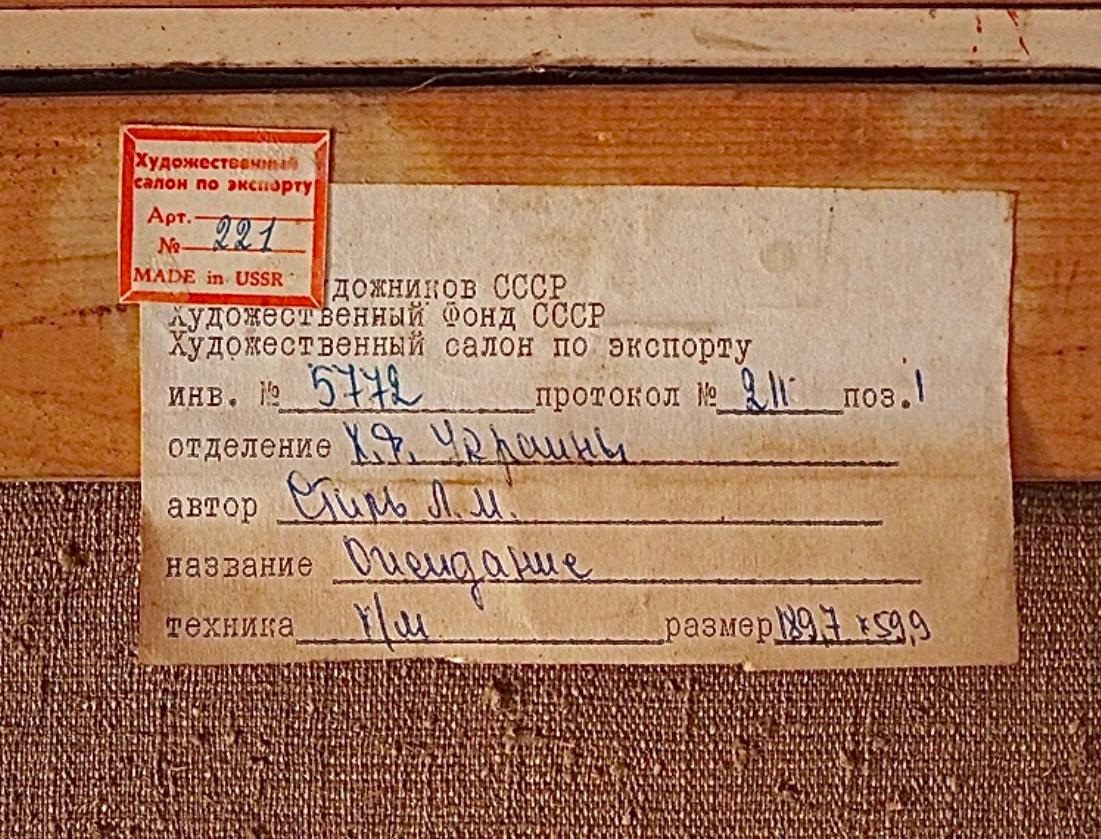 Художественный
салон по экспорту
Арт.
№ 221
MADE in USSR
дожников СССР
Художественный Фонд СССР
Художественный салон по экспорту
инв. № 5772 протокол № 211 поз. 1
отделение Х.Ф. Украины
автор Стиль Л.М.
название Ожидание
техника х/м размер 189,7 x 59,9